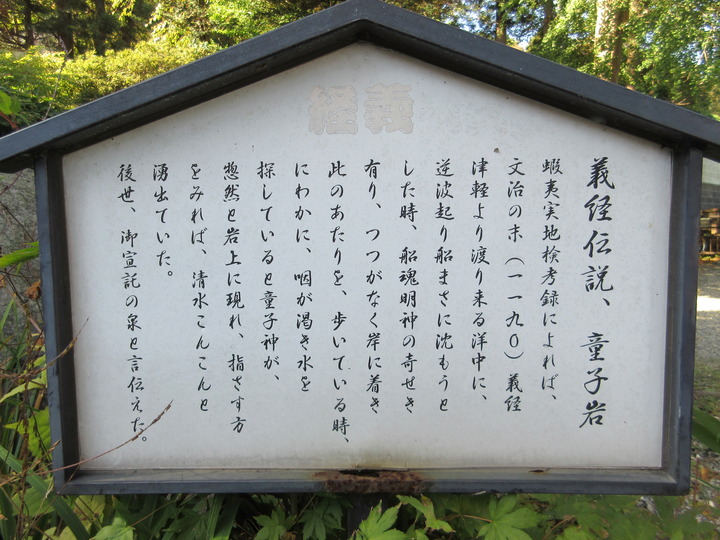 義経
義経伝説、童子岩
蝦夷実地検考録によれば、
文治の末（一一九〇）義経
津軽より渡り来る洋中に、
逆波起り船まさに沈もうと
した時、船魂明神の奇せき
有り、つつがなく岸に着き
此のあたりを、歩いている時、
にわかに、咽が渇き水を
探していると童子神が、
惣然と岩上に現れ、指さす方
をみれば、清水こんこんと
湧出ていた。
後世、御宣託の泉と言伝えた。